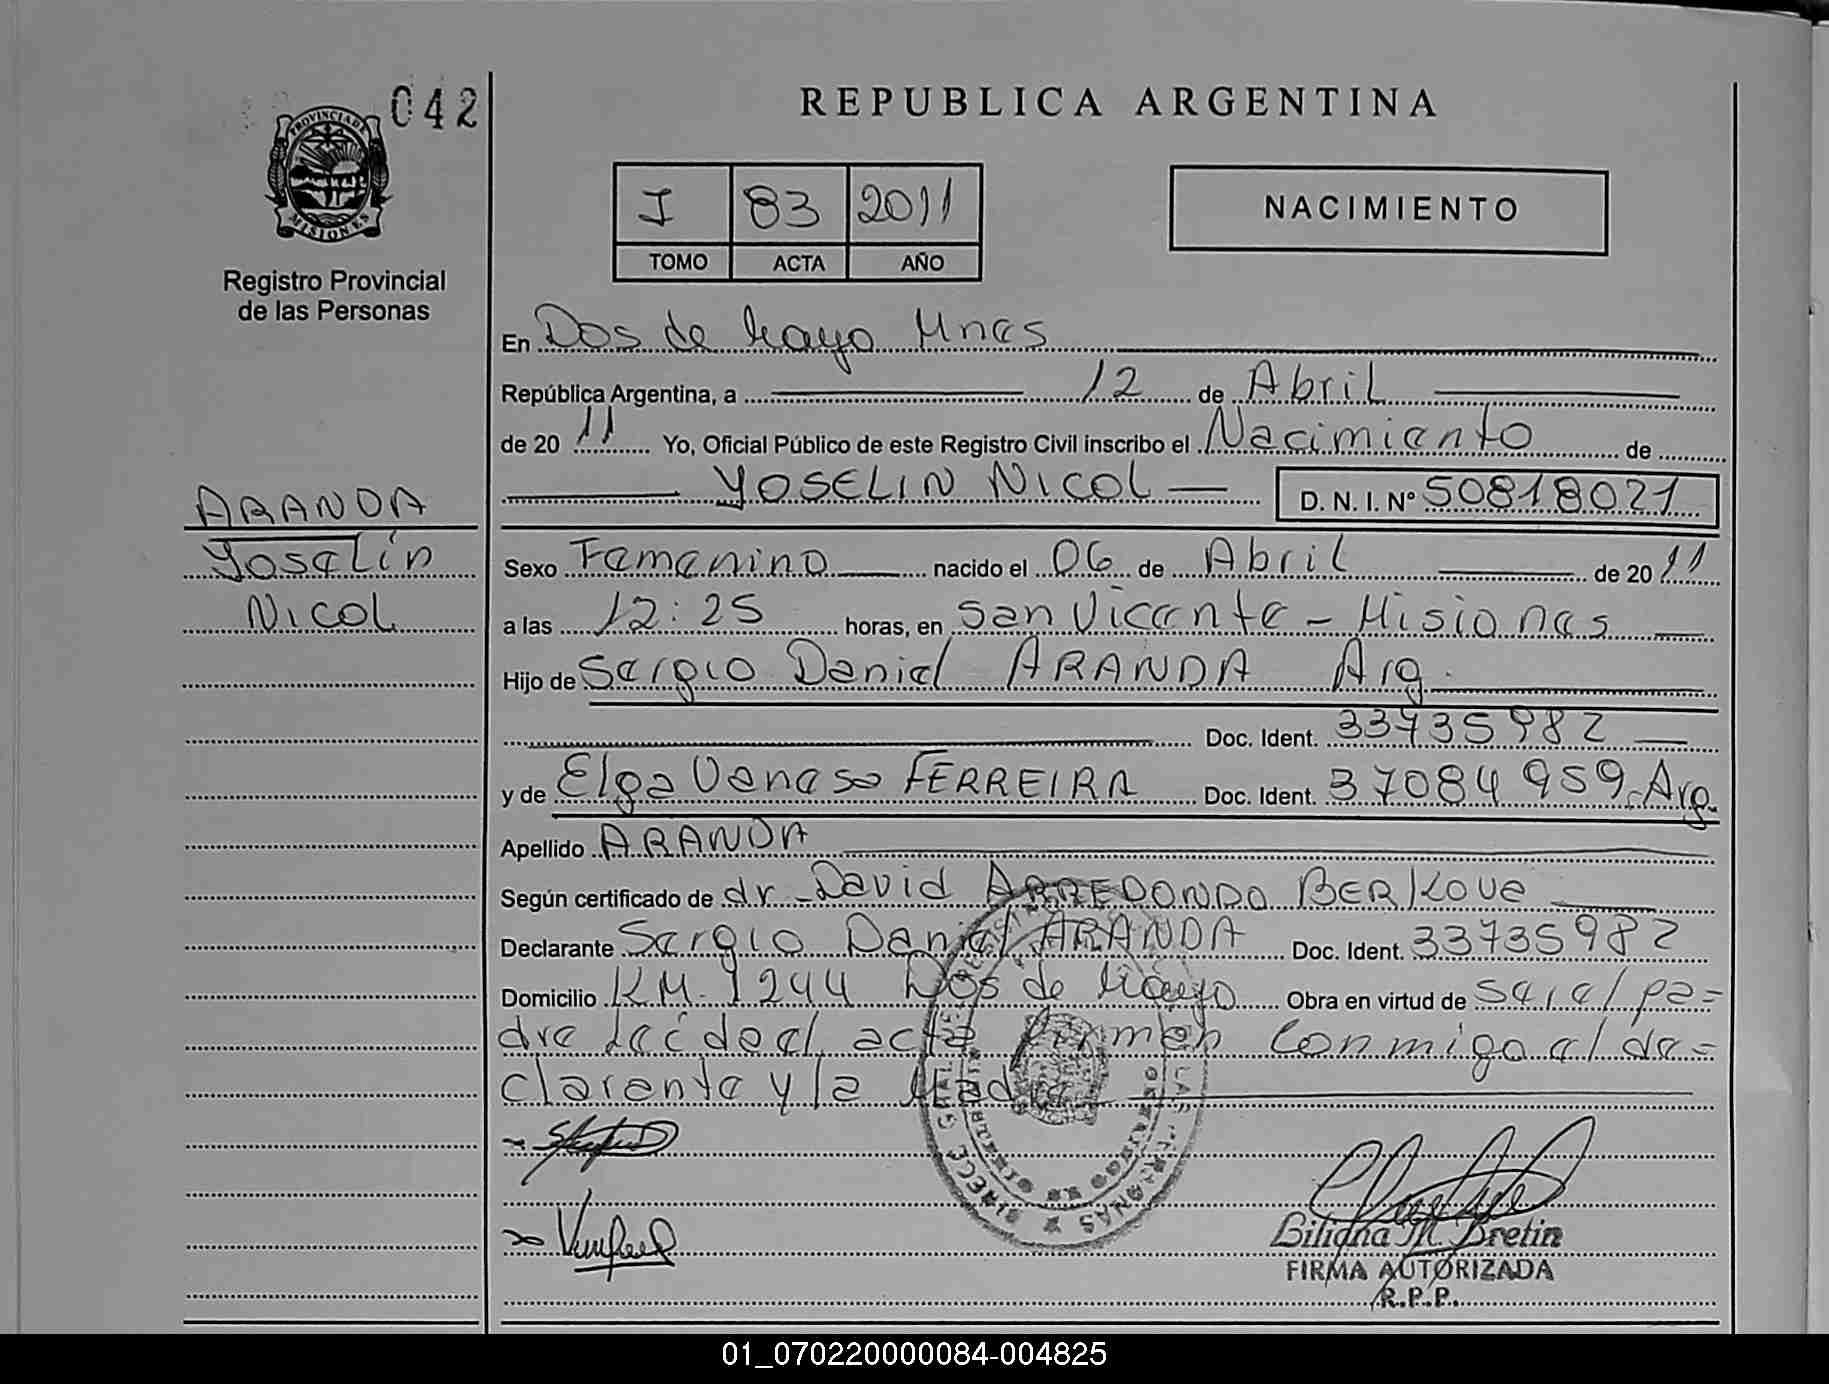 042
PROVINCIA DE
MISIONES
Registro Provincial
de las Personas
REPUBLICA ARGENTINA
I 83 2011
TOMO ACTA AÑO
NACIMIENTO
En Dos de Mayo Mnes
República Argentina, a 12 de Abril
de 20 11 Yo, Oficial Público de este Registro Civil inscribo el Nacimiento de
YOSELIN NICOL D. N. I. Nº 50818021
ARANDA
Yoselin
Nicol
Sexo Femenino nacido el 06 de Abril de 20 11
a las 12:25 horas, en San Vicente - Misiones
Hijo de Sergio Daniel ARANDA Arg.
Doc. Ident. 33735982
y de Elga Venesa FERREIRA Doc. Ident. 37084959 Arg.
Apellido ARANDA
Según certificado de dr. David ARREDONDO BERKOVE
Declarante Sergio Daniel ARANDA Doc. Ident. 33735982
Domicilio KM. 1244 Dos de Mayo Obra en virtud de ser el pa=
dre Leída el acta firman conmigo el de=
clarante y la Madre
LAS PERSONAS
Biliana M. Bretin
FIRMA AUTORIZADA
R.P.P.
01_070220000084-004825